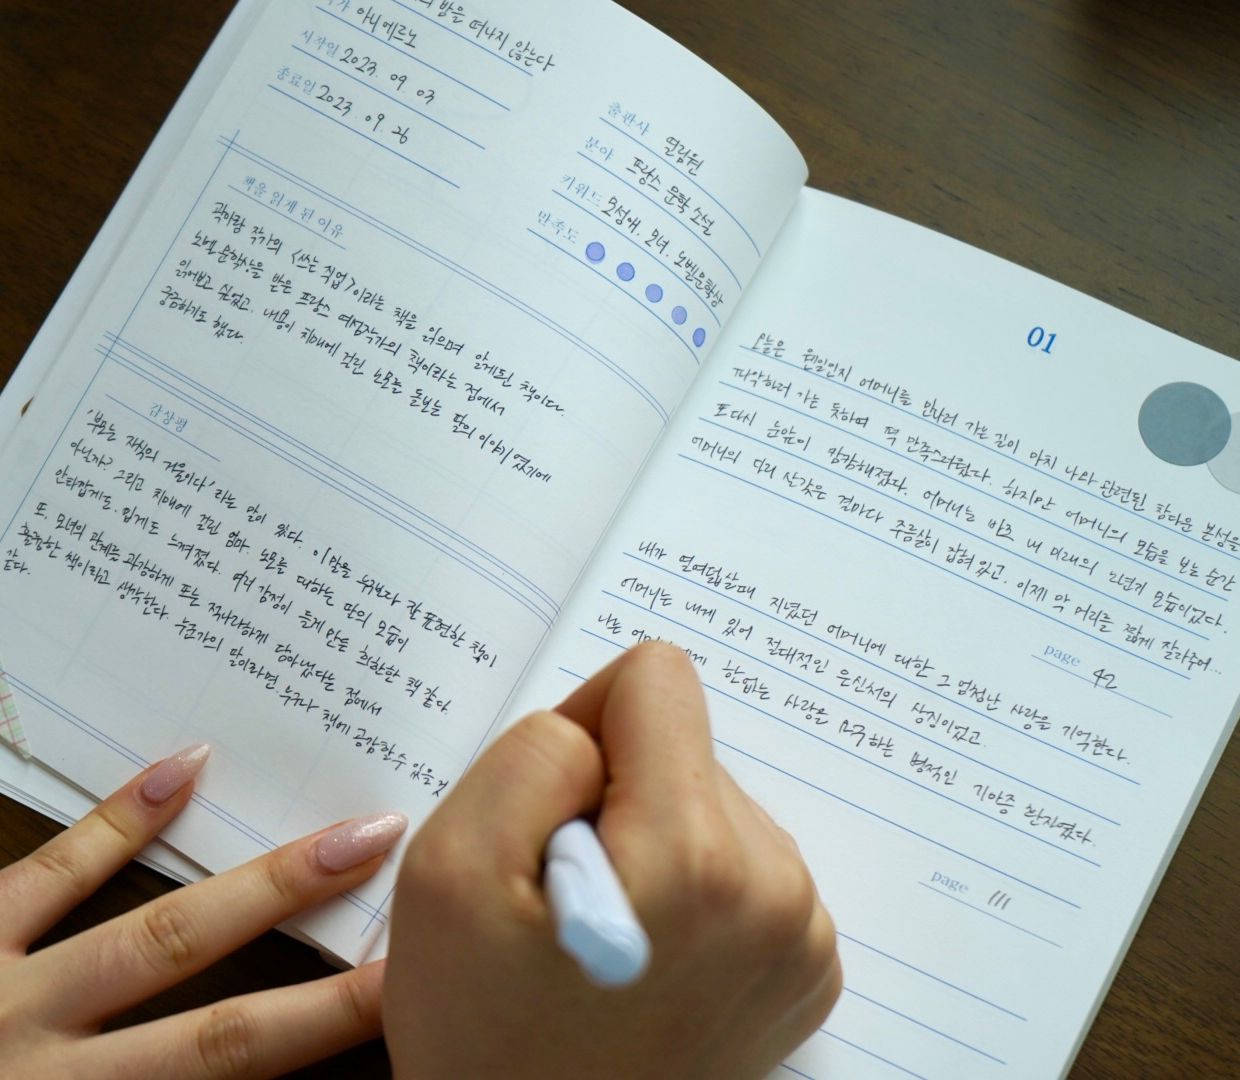 밤을 떠나지 않는다
아니 에르노
시작일 2023. 09. 03
종료일 2023. 09. 26
출판사 열림원
분야 프랑스 문학 소설
키워드 모성애, 모녀, 노벨문학상
만족도
책을 읽게 된 이유
곽아람 작가의 <쓰는 직업>이라는 책을 읽으며 알게된 책이다.
노벨 문학상을 받은 프랑스 여성작가의 책이라는 점에서
읽어보고 싶었고, 내용이 치매에 걸린 노모를 돌보는 딸의 이야기였기에
궁금하기도 했다.
감상평
'부모는 자식의 거울이다' 라는 말이 있다. 이 말을 누구보다 잘 표현한 책이
아닐까? 그리고 치매에 걸린 엄마. 노모를 대하는 딸의 모습이
안타깝게도, 밉게도 느껴졌다. 여러 감정이 들게 만든 희한한 책 같다.
또, 모녀의 관계를 과장하게 또는 적나라하게 담아냈다는 점에서
훌륭한 책이라고 생각한다. 누군가의 딸이라면 누구나 책에 공감할 수 있을 것
같다.
01
오늘은 웬일인지 어머니를 만나러 가는 길이 마치 나와 관련된 참다운 본성을
자각하러 가는 듯하여 퍽 만족스러웠다. 하지만 어머니의 모습을 보는 순간
또다시 눈앞이 캄캄해졌다. 어머니는 바로 내 미래의 노년기 모습이었다.
어머니의 다리 살갗은 결마다 주름살이 잡혀 있고, 이제 막 머리를 짧게 잘라주어...
page 42
내가 열여덟살때 지녔던 어머니에 대한 그 엄청난 사랑을 기억한다.
어머니는 내게 있어 절대적인 은신처의 상징이었고.
나는 한없는 사랑을 요구하는 병적인 기아증 환자였다.
page 111